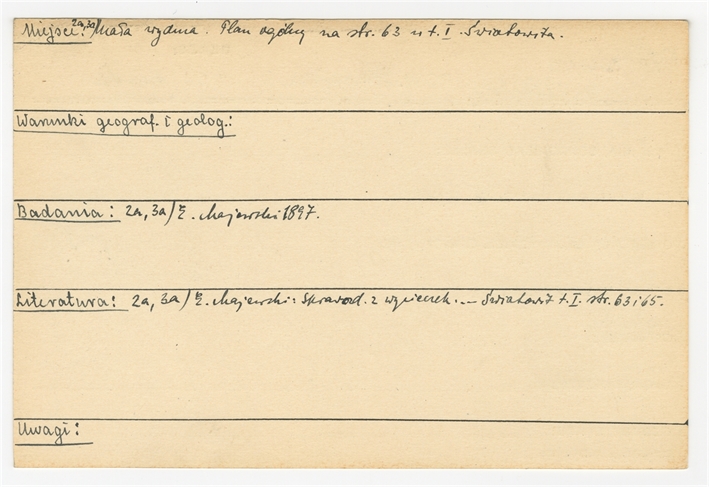 Miejsce: 2a, 3a/ Mała wydma. Plan ogólny na str. 63 w t. I. Światowita.
Warunki geograf. i geolog.:
Badania: 2a, 3a/ E. Majewski 1897.
Literatura: 2a, 3a/ E. Majewski: Sprawozd. z wycieczek... – Światowit t. I. str. 63 i 65.
Uwagi: